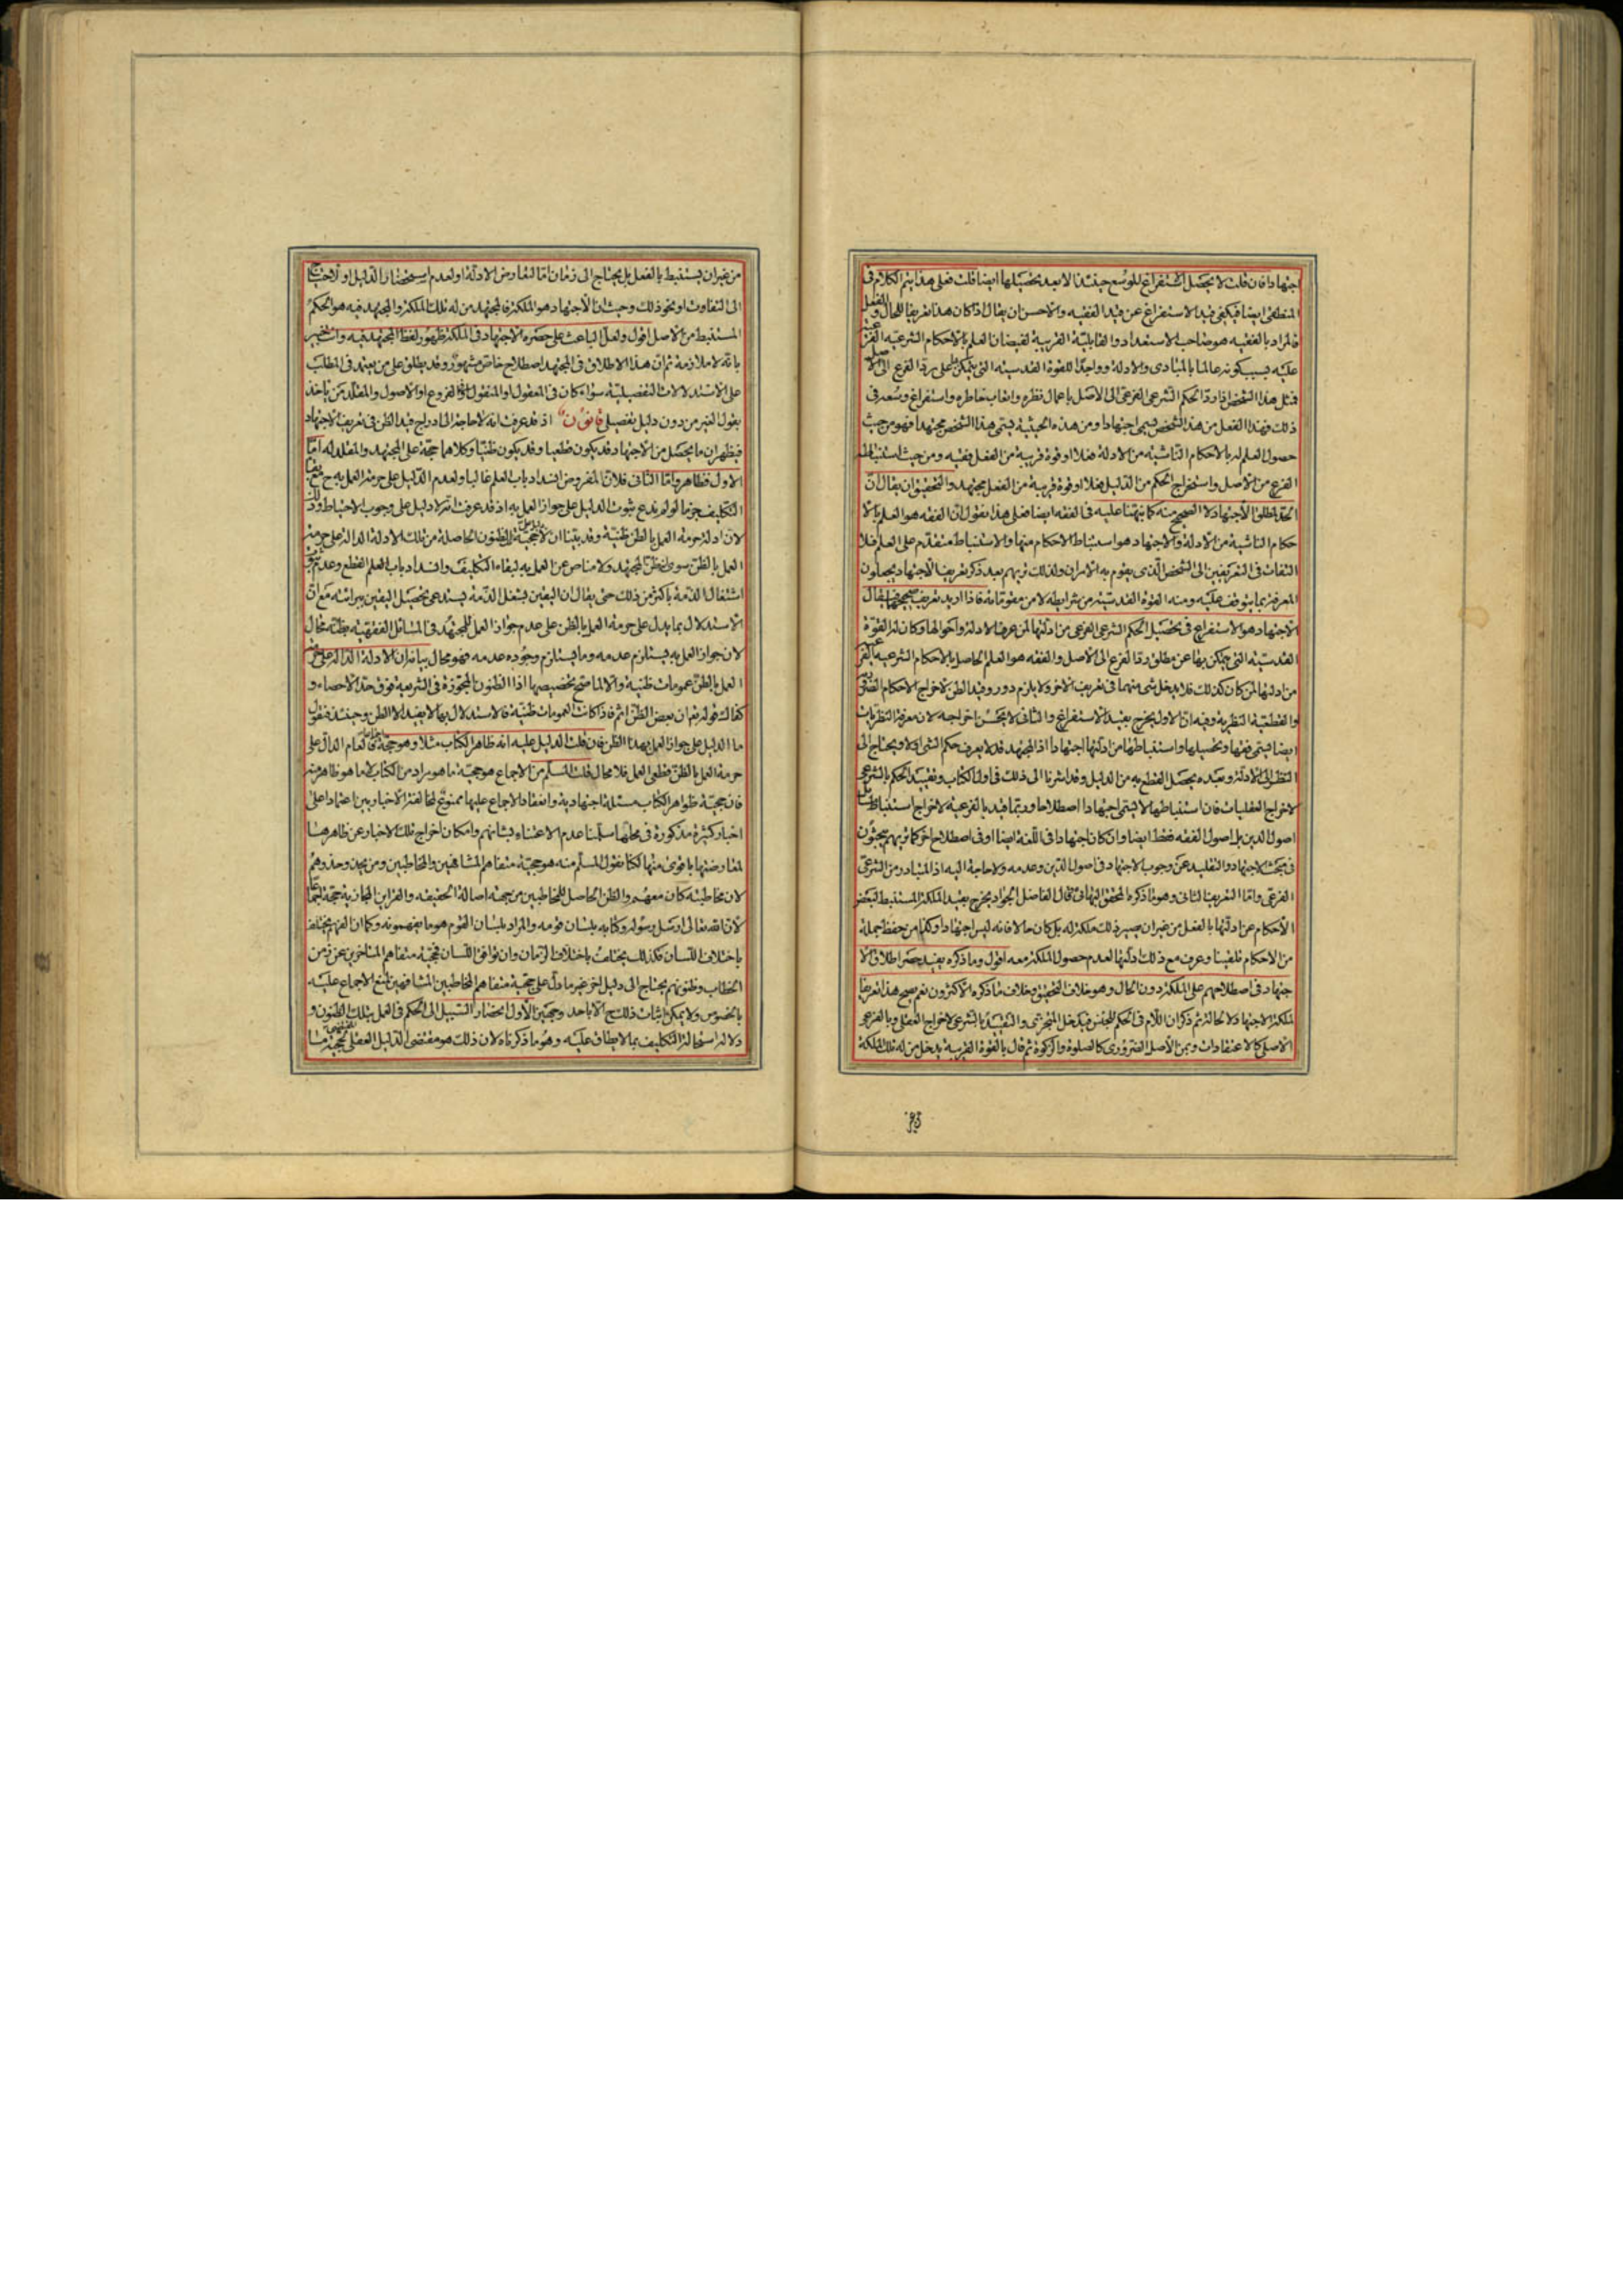 اجتهادا فان قلت لا يحصل الاستفراغ للوسع حينئذ الا بعد تحصيلها ايضا قلت فعلى هذا يتم الكلام فى
المنطقى ايضا فيكفى قيد الاستفراغ عن قيد الفقيه والاحسن ان يقال اذا كان هذا تعريفا للحال والفعل
فالمراد بالفقيه هو صاحب الاستعداد والقابلية القريبة لفيضان العلم بالاحكام الشرعية الفرعية
عليه بسبب كونه عالما بالمبادى والادلة وواجدا للقوة القدسية التى يتمكن بها على رد الفرع الى الاصل
فمثل هذا الشخص اذا رد الحكم الشرعى الفرعى الى الاصل باعمال نظره واتعاب خاطره واستفراغ وسعه فى
ذلك فهذا الفعل من هذا الشخص يسمى اجتهادا ومن هذه الحيثية يسمى هذا الشخص مجتهدا فهو من حيث
حصول العلم له بالاحكام الناشية من الادلة فعلا او قوة قريبة من الفعل فقيه ومن حيث استنباط
الفرع من الاصل واستخراج الحكم من الدليل فعلا او قوة قريبة من الفعل مجتهد والتحقيق ان يقال ان
الحد لمطلق الاجتهاد لا الصحيح منه كما نبهنا عليه فى الفقه ايضا فعلى هذا نقول ان الفقه هو العلم بالا
حكام الناشية من الادلة والاجتهاد هو استنباط الاحكام منها والاستنباط متقدم على العلم فلا
التفات فى التعريفين الى الشخص الذى يقوم به الامران ولذلك تريهم بعد ذكر تعريف الاجتهاد يجعلون
المعرفة بما يتوقف عليه ومنه القوة القدسية من شرايطه لا من مقوماته فاذا اريد تعريف صحيحهما يقال
الاجتهاد هو الاستفراغ فى تحصيل الحكم الشرعى الفرعى من ادلتها لمن عرف الادلة واحوالها وكان له القوة
القدسية التى يتمكن بها عن مطلق رد الفرع الى الاصل والفقه هو العلم الحاصل بالاحكام الشرعية الفرعية
من ادلتها لمن كان كذلك فلا يدخل شى منهما فى تعريف الاخر ولا يلزم دور وقيد الظن لاخراج الاحكام
والقطعية النظرية وفيه ان الاول يخرج بقيد الاستفراغ والثانى لا يحسن اخراجه لان معرفة النظريات
ايضا يسمى فقها وتحصيلها واستنباطها من ادلتها اجتهادا اذ المجتهد قد لا يعرف حكم الشى اولا ويحتاج الى
النظر الى الادلة وبعده يحصل القطع به من الدليل وقد اشرنا الى ذلك فى اول الكتاب وتقييد الحكم بالشرعى
لاخراج العقليات فان استنباطها لا يسمى اجتهادا اصطلاحا وربما قيد بالفرعية لاخراج استنباط
اصول الدين بل اصول الفقه فقط ايضا وان كان اجتهادا فى اللغة ايضا او فى اصطلاح اخر كما تريهم يبحثون
فى مبحث الاجتهاد والتقليد عن وجوب الاجتهاد فى اصول الدين وعدمه ولا حاجة اليه اذ المتبادر من الشرعى
الفرعى واما التعريف الثانى وهو ما ذكره المحقق البهائى قال الفاضل الجواد يخرج بقيد الملكة المستنبط لبعض
الاحكام عن ادلتها بالفعل من غير ان يصير ذلك ملكة له بل كان حالا فانه ليس اجتهادا وكذا من حفظ جملة
من الاحكام تلقينا وعرف مع ذلك دلتها لعدم حصول الملكة معه اقول وما ذكره يفيد حصر اطلاق الا
جتهاد فى اصطلاحهم على الملكة دون الحال وهو خلاف التحقيق وخلاف ما ذكره الاكثرون نعم يصح هذا تعريفا
لملكة الاجتهاد لا لحاله ثم ذكر ان اللام فى الحكم للجنس فيدخل المتجزى والتقييد بالشرعى لاخراج العقلى وبالفرعى
الاصلى كالاعتقادات وبمن الاصل الضرورى كالصلوة والزكوة ثم قال بالقوة القريبة يدخل من له تلك الملكة
من غير ان يستنبط بالفعل بل يحتاج الى زمان اما لتعارض الادلة او لعدم استحضار الدليل او لاحتياج
الى التفاوت او نحو ذلك وحيث ان الاجتهاد هو الملكة فالمجتهد من له تلك الملكة والمجتهد فيه هو الحكم
المستنبط من الاصل اقول ولعل الباعث على حصره الاجتهاد فى الملكة ظهور لفظ المجتهد فيه وانت خبير
بانه لا ملازمة ثم ان هذا الاطلاق فى المجتهد اصطلاح خاص مشهور وقد يطلق على من يعتمد فى المطلب
على الاستدلالات التفصيلية سواء كان فى المعقول او المنقول او الفروع او الاصول والمقلد من ياخذ
بقول الغير من دون دليل تفصيلى قانون اذ قد عرفت انه لا حاجة الى ادراج قيد الظن فى تعريف الاجتهاد
فيظهر ان ما يحصل من الاجتهاد قد يكون قطعيا وقد يكون ظنيا وكلاهما حجة على المجتهد والمقلد له اما
الاول فظاهر واما الثانى فلان المفروض انسداد باب العلم غالبا ولعدم الدليل على حرمة العمل به ح مع بقاء
التكليف جزما لو لم ندع ثبوت الدليل على جواز العمل به اذ قد عرفت انه لا دليل على وجوب الاحتياط وذلك
لان ادلة حرمة العمل بالظن ظنية وقد بينا ان لا حجية لتلك الظنون الحاصلة من تلك الادلة الدالة على حرمة
العمل بالظن سوى ظن المجتهد ولا مناص عن العمل به لبقاء التكليف وانسداد باب العلم القطع وعدم ثبوت
اشتغال الذمة باكثر من ذلك حتى يقال ان اليقين بشغل الذمة يستدعى تحصيل اليقين ببرائته مع ان
الاستدلال بما يدل على حرمة العمل بالظن على عدم جواز العمل للمجتهد فى المسائل الفقهية بظنه محال
لان جواز العمل به يستلزم عدمه وما يستلزم وجوده عدمه فهو محال بيانه ان الادلة الدالة على حرمة
العمل بالظن عمومات ظنية والا لما صح تخصيصها اذ الظنون المجوزة فى الشريعة فوق حد الاحصاء و
كفاك قوله تعالى ان بعض الظن اثم فاذا كانت العمومات ظنية فالاستدلال بها لا يفيد الا الظن وحينئذ فنقول
ما الدليل على جواز العمل بهذا الظن فان قلت الدليل عليه انه ظاهر الكتاب مثلا وهو حجة اجماعا كعام الدال على
حرمة العمل بالظن قطعى العمل فلا محال قلت المسلم من الاجماع هو حجية ما هو مراد من الكتاب لا ما هو ظاهر منه
فان حجية ظواهر الكتاب مسئلة اجتهادية وانعقاد الاجماع عليها ممنوع لمخالفة الاخباريين اعتمادا على
اخبار كثيرة مذكورة فى محلها سلمنا عدم الاعتناء بشانهم وامكان اخراج تلك الاخبار عن ظاهرها
لمعارضتها باقوى منها لكنا نقول المسلم منه هو حجية متفاهم المشافهين والمخاطبين ومن يحذو حذوهم
لان مخاطبته كان معهم والظن الحاصل للمخاطبين من جهة اصالة الحقيقة والقراين المجازية حجة اجماعا
لان الله تعالى ارسل رسوله وكتابه بلسان قومه والمراد بلسان القوم هو ما يفهمونه وكما ان الفهم يختلف
باختلاف اللسان فكذلك يختلف باختلاف الزمان وان توافق اللسان فحجية متفاهم المتاخرين عن زمن
الخطاب وظنونهم يحتاج الى دليل اخر غير ما دل على حجية متفاهم المخاطبين المشافهين لمنع الاجماع عليه
بالخصوص ولا يمكن اثبات ذلك ح الا باحد وجهين الاول انحصار السبيل الى الحكم فى العمل بتلك الظنون و
دلالة استحالة التكليف بما لا يطاق عليه وهو ما ذكرناه لان ذلك هو مقتضى الدليل العقلى